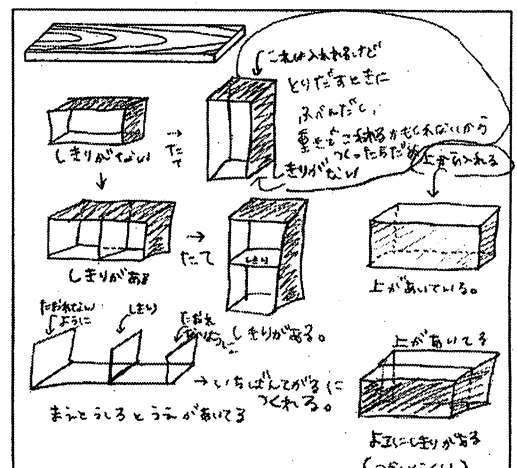 これは入れれるけど
とりだすときに
ふべんだし、
重さでこわれるかもしれないから
つくったらだめ
しきりがない
たて
しきりがない
上から入れる
しきりがある
たて
しきり
しきりがある。
上があいている。
たおれない
ように
しきり
たおれ
ないように
→いちばんてがるに
つくれる。
まえとうしろとうえがあいてる
上があいてる
よこにしきりがある